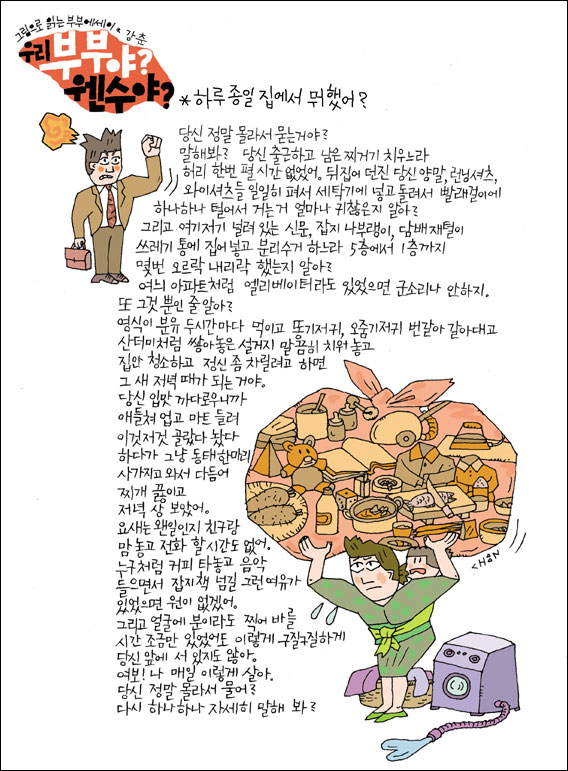 그림으로 읽는 부부에세이 * 강춘
우리 부부야?
웬수야?
* 하루 종일 집에서 뭐했어?
당신 정말 몰라서 묻는거야?
말해봐? 당신 출근하고 남은 찌거기 치우느라
허리 한번 펼 시간 없었어. 뒤집어 던진 당신 양말, 런닝셔츠,
와이셔츠들 일일히 펴서 세탁기에 넣고 돌려서 빨래걸이에
하나하나 털어서 거는거 얼마나 귀찮은지 알아?
그리고 여기저기 널려 있는 신문, 잡지 나부랭이, 담배 재털이
쓰레기 통에 집어 넣고 분리수거 하느라 5층에서 1층까지
몇번 오르락 내리락 했는지 알아?
여늬 아파트처럼 엘리베이터라도 있었으면 군소리나 안하지.
또 그것 뿐인 줄 알아?
영식이 분유 두시간마다 먹이고 똥기저귀, 오줌기저귀 번갈아 갈아대고
산더미처럼 쌓아놓은 설거지 말끔히 치워 놓고
집안 청소하고 정신 좀 차릴려고 하면
그 새 저녁 때가 되는 거야.
당신 입맛 까다로우니까
애들쳐 업고 마트 들려
이것저것 골랐다 놨다
하다가 그냥 동태 한마리
사가지고 와서 다듬어
찌개 끓이고
저녁 상 보았어.
요새는 왠일인지 친구랑
맘 놓고 전화 할 시간도 없어.
누구처럼 커피 타놓고 음악
들으면서 잡지책 넘길 그런 여유가
있었으면 원이 없겠어.
그리고 얼굴에 분이라도 찍어 바를
시간 조금만 있었어도 이렇게 구질구질하게
당신 앞에 서 있지도 않아.
여보! 나 매일 이렇게 살아.
당신 정말 몰라서 물어?
다시 하나하나 자세히 말해 봐?
CHOON